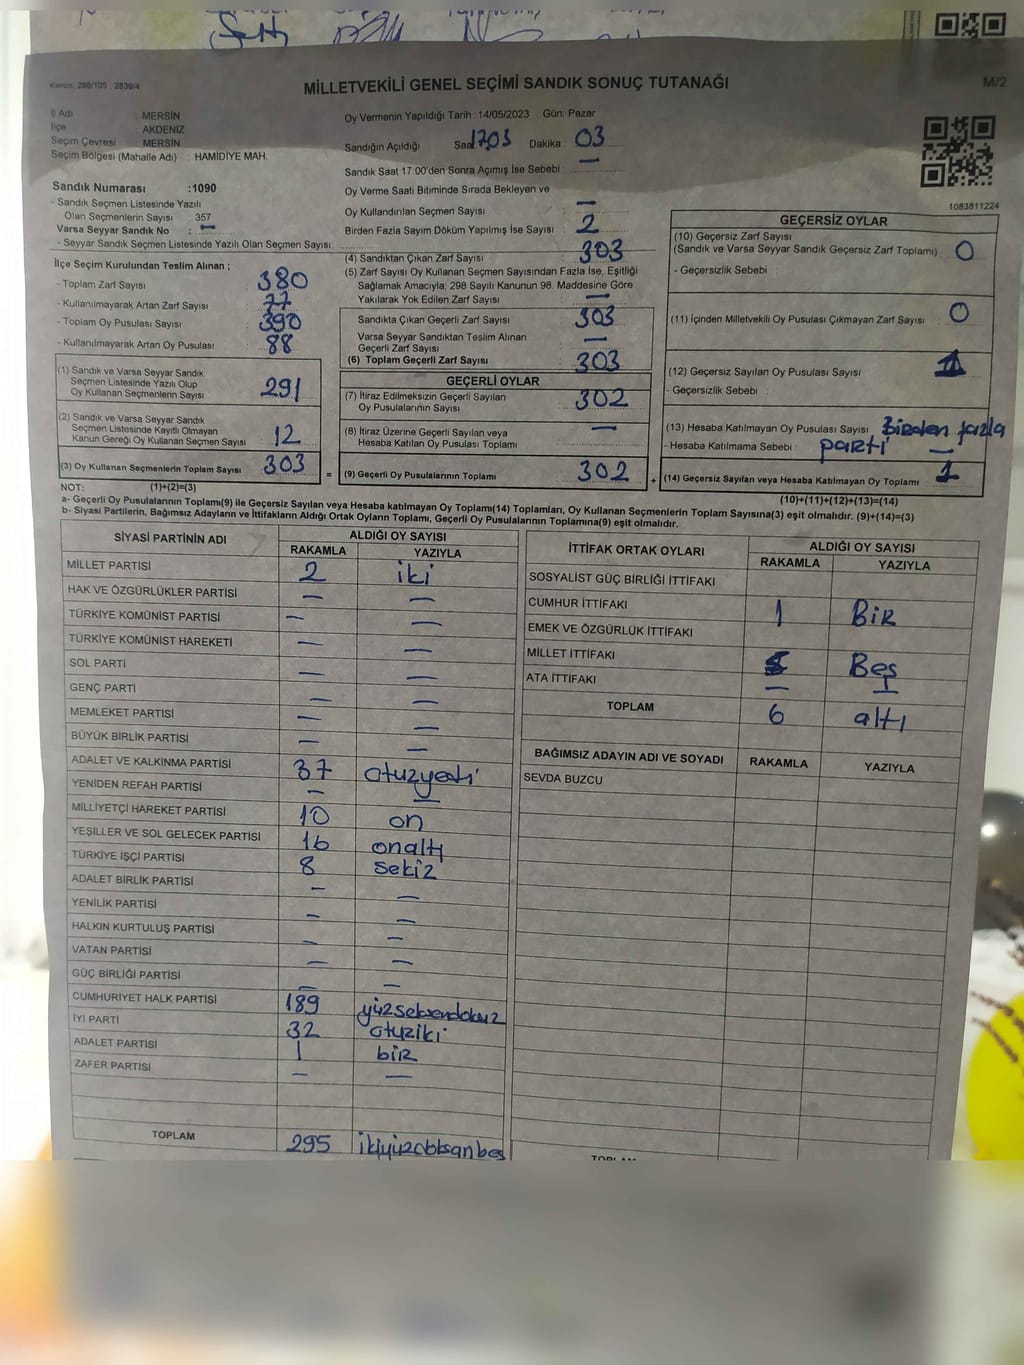 Kanun, 298/105 , 2839/4
MİLLETVEKİLİ GENEL SEÇİMİ SANDIK SONUÇ TUTANAĞI
M/2
İl Adı MERSİN
İlçe AKDENİZ
Seçim Çevresi MERSİN
Seçim Bölgesi (Mahalle Adı) : HAMİDİYE MAH.
Oy Vermenin Yapıldığı Tarih : 14/05/2023 Gün: Pazar
Sandığın Açıldığı Saat 1703 Dakika : 03
Sandık Saat 17:00'den Sonra Açımış İse Sebebi : —
Oy Verme Saati Bitiminde Sırada Bekleyen ve
Oy Kullandırılan Seçmen Sayısı : —
Birden Fazla Sayım Döküm Yapılmış İse Sayısı : 2
1083811224
Sandık Numarası :1090
- Sandık Seçmen Listesinde Yazılı
Olan Seçmenlerin Sayısı : 357
Varsa Seyyar Sandık No : —
- Seyyar Sandık Seçmen Listesinde Yazılı Olan Seçmen Sayısı:
İlçe Seçim Kurulundan Teslim Alınan ;
- Toplam Zarf Sayısı : 380
- Kullanılmayarak Artan Zarf Sayısı : 77
- Toplam Oy Pusulası Sayısı : 390
- Kullanılmayarak Artan Oy Pusulası : 88
(1) Sandık ve Varsa Seyyar Sandık
Seçmen Listesinde Yazılı Olup
Oy Kullanan Seçmenlerin Sayısı : 291
(2) Sandık ve Varsa Seyyar Sandık
Seçmen Listesinde Kayıtlı Olmayan
Kanun Gereği Oy Kullanan Seçmen Sayısı : 12
(3) Oy Kullanan Seçmenlerin Toplam Sayısı : 303
(4) Sandıktan Çıkan Zarf Sayısı : 303
(5) Zarf Sayısı Oy Kullanan Seçmen Sayısından Fazla İse, Eşitliği
Sağlamak Amacıyla; 298 Sayılı Kanunun 98. Maddesine Göre
Yakılarak Yok Edilen Zarf Sayısı : —
Sandıkta Çıkan Geçerli Zarf Sayısı : 303
Varsa Seyyar Sandıktan Teslim Alınan
Geçerli Zarf Sayısı : —
(6) Toplam Geçerli Zarf Sayısı : 303
GEÇERLİ OYLAR
(7) İtiraz Edilmeksizin Geçerli Sayılan
Oy Pusulalarının Sayısı : 302
(8) İtiraz Üzerine Geçerli Sayılan veya
Hesaba Katılan Oy Pusulası Toplamı : —
= (9) Geçerli Oy Pusulalarının Toplamı : 302
GEÇERSİZ OYLAR
(10) Geçersiz Zarf Sayısı
(Sandık ve Varsa Seyyar Sandık Geçersiz Zarf Toplamı) : 0
- Geçersizlik Sebebi :
(11) İçinden Milletvekili Oy Pusulası Çıkmayan Zarf Sayısı : 0
(12) Geçersiz Sayılan Oy Pusulası Sayısı : 1
- Geçersizlik Sebebi :
(13) Hesaba Katılmayan Oy Pusulası Sayısı : Birden fazla
- Hesaba Katılmama Sebebi : parti —
+ (14) Geçersiz Sayılan veya Hesaba Katılmayan Oy Toplamı : 1
NOT: (1)+(2)=(3) (10)+(11)+(12)+(13)=(14)
a- Geçerli Oy Pusulalarının Toplamı(9) ile Geçersiz Sayılan veya Hesaba katılmayan Oy Toplamı(14) Toplamları, Oy Kullanan Seçmenlerin Toplam Sayısına(3) eşit olmalıdır. (9)+(14)=(3)
b- Siyasi Partilerin, Bağımsız Adayların ve İttifakların Aldığı Ortak Oyların Toplamı, Geçerli Oy Pusulalarının Toplamına(9) eşit olmalıdır.
SİYASİ PARTİNİN ADI ALDIĞI OY SAYISI
RAKAMLA YAZIYLA
MİLLET PARTİSİ 2 iki
HAK VE ÖZGÜRLÜKLER PARTİSİ — —
TÜRKİYE KOMÜNİST PARTİSİ — —
TÜRKİYE KOMÜNİST HAREKETİ — —
SOL PARTİ — —
GENÇ PARTİ — —
MEMLEKET PARTİSİ — —
BÜYÜK BİRLİK PARTİSİ — —
ADALET VE KALKINMA PARTİSİ 37 otuzyedi
YENİDEN REFAH PARTİSİ — —
MİLLİYETÇİ HAREKET PARTİSİ 10 on
YEŞİLLER VE SOL GELECEK PARTİSİ 16 onaltı
TÜRKİYE İŞÇİ PARTİSİ 8 sekiz
ADALET BİRLİK PARTİSİ — —
YENİLİK PARTİSİ — —
HALKIN KURTULUŞ PARTİSİ — —
VATAN PARTİSİ — —
GÜÇ BİRLİĞİ PARTİSİ — —
CUMHURİYET HALK PARTİSİ 189 yüzseksendokuz
İYİ PARTİ 32 otuziki
ADALET PARTİSİ 1 bir
ZAFER PARTİSİ — —
TOPLAM 295 ikiyüzdoksanbeş
İTTİFAK ORTAK OYLARI ALDIĞI OY SAYISI
RAKAMLA YAZIYLA
SOSYALİST GÜÇ BİRLİĞİ İTTİFAKI
CUMHUR İTTİFAKI 1 Bir
EMEK VE ÖZGÜRLÜK İTTİFAKI
MİLLET İTTİFAKI 5 Beş
ATA İTTİFAKI — —
TOPLAM 6 altı
BAĞIMSIZ ADAYIN ADI VE SOYADI RAKAMLA YAZIYLA
SEVDA BUZCU
TOPLAM